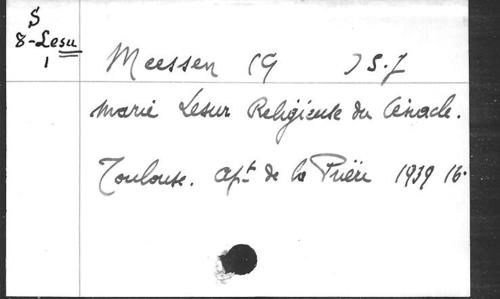 S
8-Lesu
1
Meessen (G ) S.J
Marie Lesur Religieuse du Cénacle.
Toulouse. Apt. de la Prière 1939 16°